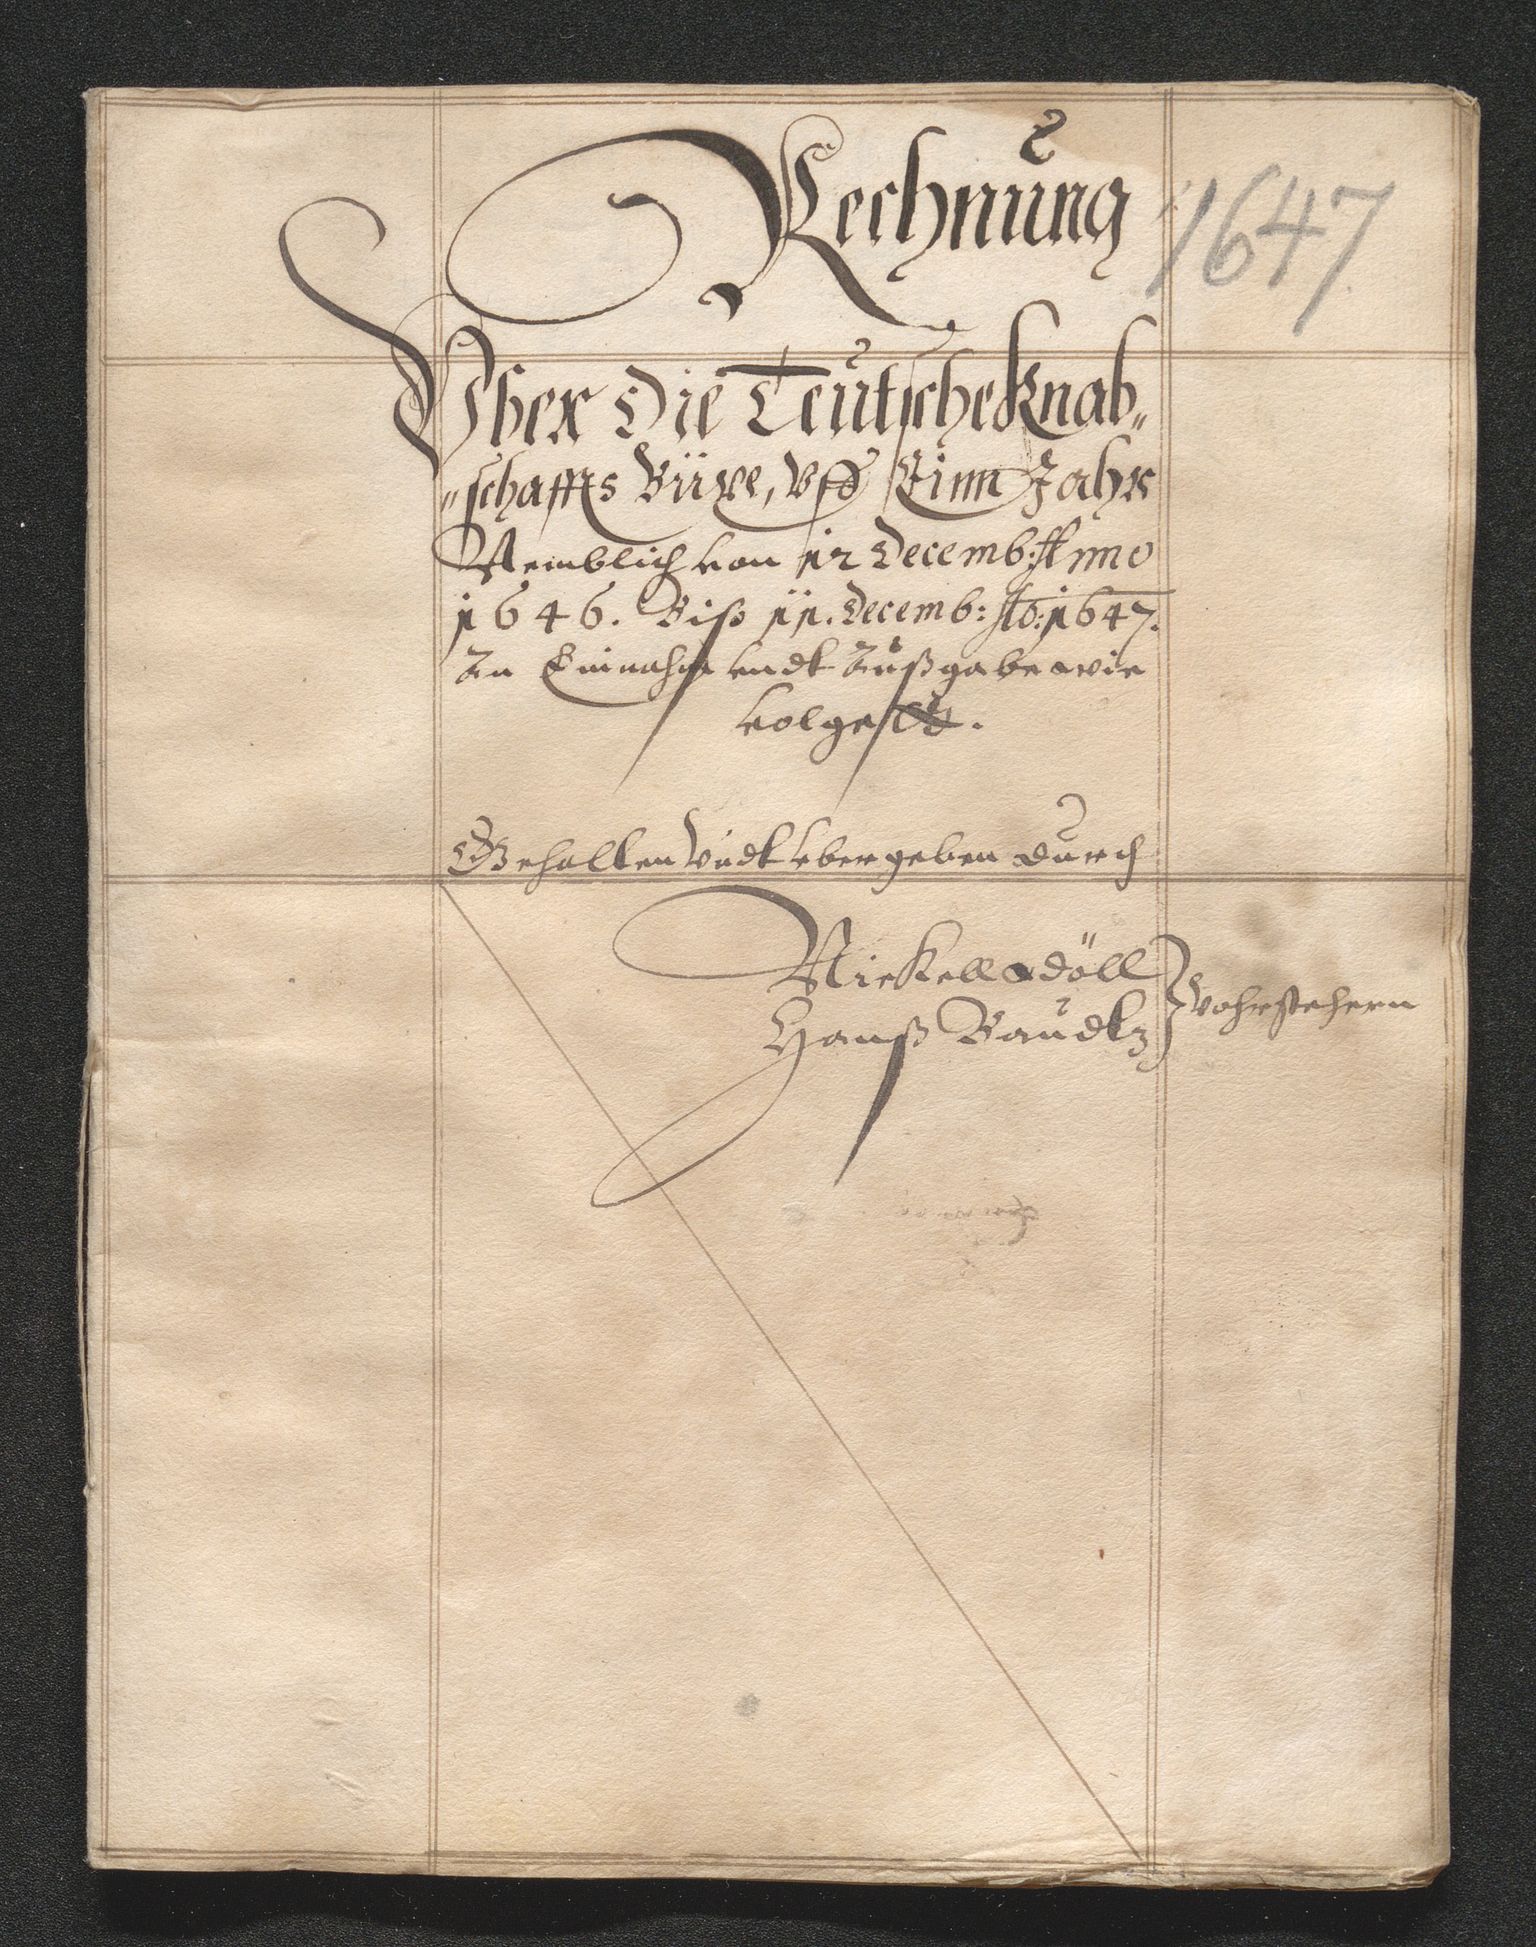 Rechnung
1647
Vber Die Teutsche Knab„
„schaffts Büxe, Vff Einn Jahr
Nemblich von 12 Decemb: Anno
1646. Biß 11. Decemb: Ao: 1647.
In Einnahm vndt Außgabe wie
volgett.
Gehalten Vndt vbergeben durch
Nickell döll
Hanß Baudtz
Vohrstehern